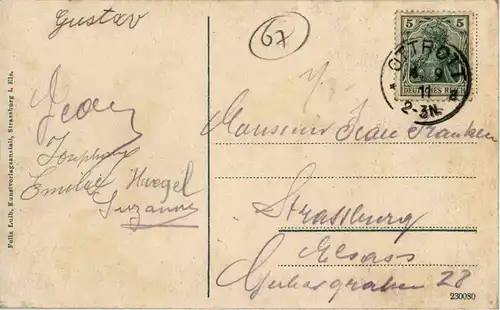 Gustav
67
5 5
DEUTSCHES REICH
OTTROTT
9
11
2-3N.
Jean
Joséphine
Emilie Haegel
Suzanne
Monsieur Jean
Strassburg
Elsass
28
Felix Luib, Kunstverlagsanstalt, Strassburg i. Els.
230080